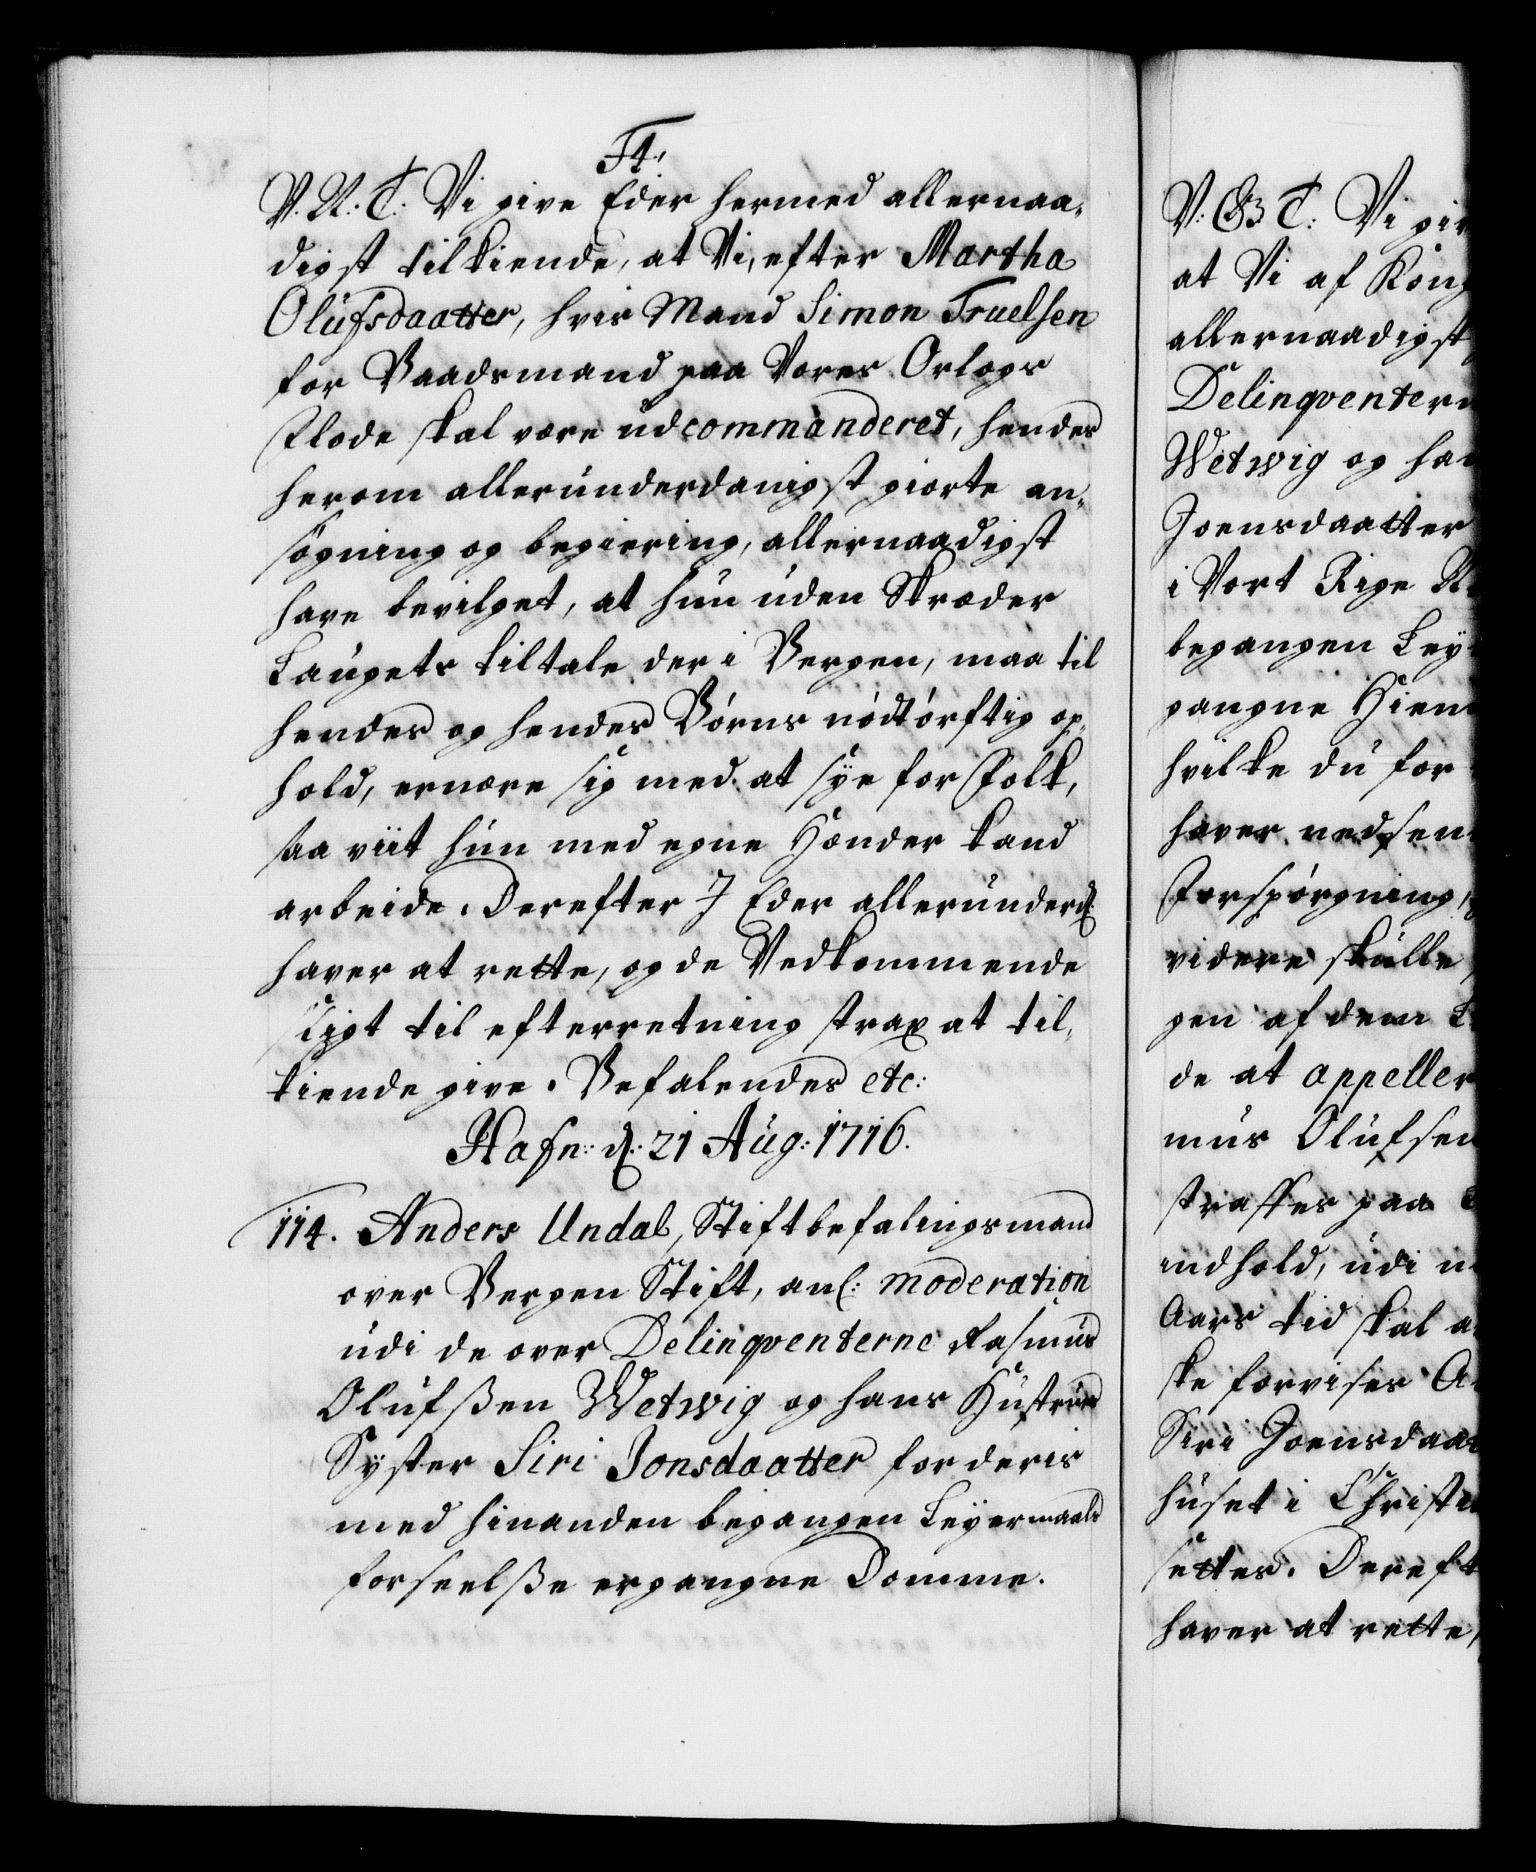 F4.
V. A. T. Vi give Eder hermed allernaa-
digst tilkiende, at Vi, efter Martha
Olufsdaatter, hvis Mand Simon Truelsen
for Baadsmand paa Vores Orlogs
Flode skal være udcommanderet, hendes
herom allerunderdanigst giorte an-
søgning og begiering, allernaadigst
have bevilget, at hun uden Skræder
Laugets tiltale der i Bergen, maa til
hendes og hendes Børns nødtørftig op-
hold, ernære sig med at sye for Folk,
saa viit hun med egne Hænder kand
arbeide. Derefter I Eder allerunderd.
haver at rette, og de Vedkommende
sligt til efterretning strax at til-
kiende give. Befalendes etc:
Hafn: d. 21 Aug: 1716.
114. Anders Undal, Stiftbefalingsmand
over Bergen Stift, anl: moderation
udi de over Delinqventerne Rasmus
Olufssen Wetwig og hans Hustrues
Syster Siri Jonsdaatter for deris
med hinanden begangen Leyermaals
forseelsse ergangne Domme.
V: G T: Vi giv
at Vi af Kong
allernaadigst
Delinqventern
Wetwig og han
Joensdaatter
i Vort Rige N
begangen Ley
gangne Hiem
hvilke du for
haver nedsen
Forspørgning,
videre skulle
gen af dem L
de at appeller
mus Olufsen
straffes paa
indhold, udi n
Aars tid skal a
ske forvises A
Siri Joensdaa
huset i Christi
settes. Dereft
haver at rette,